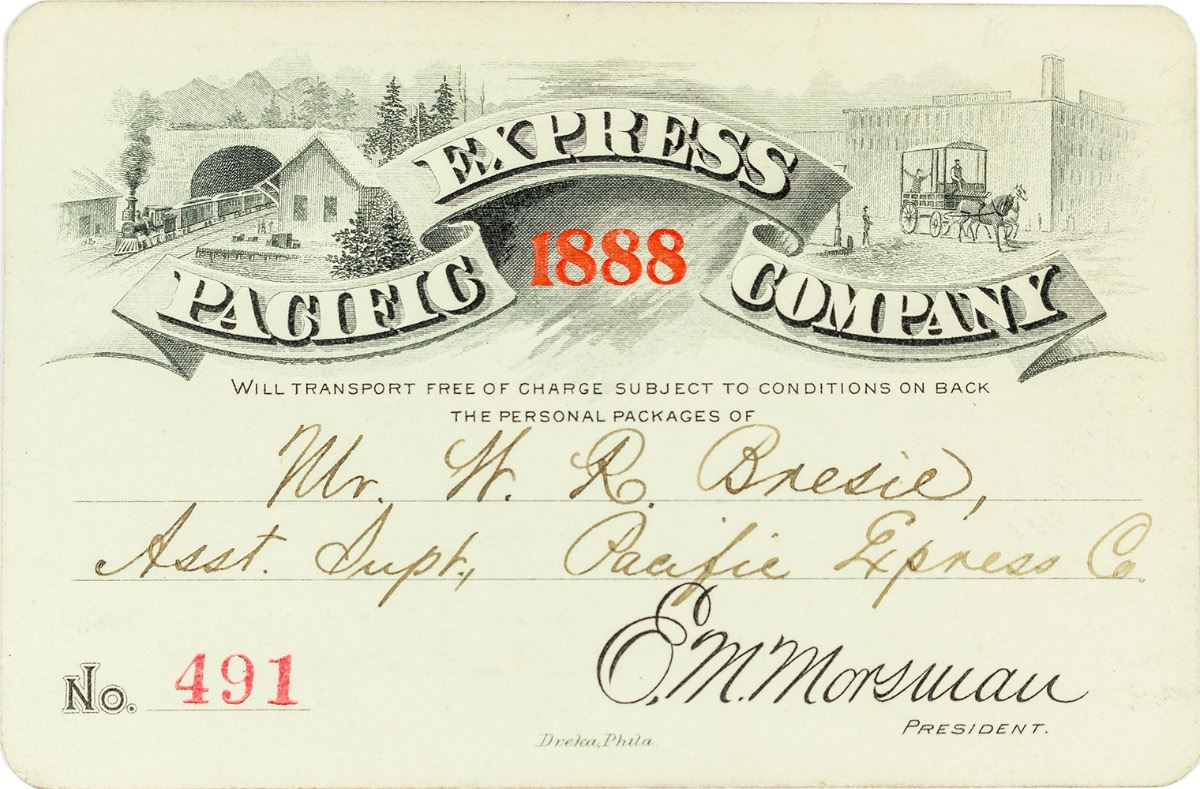 PACIFIC EXPRESS COMPANY
1888
WILL TRANSPORT FREE OF CHARGE SUBJECT TO CONDITIONS ON BACK
THE PERSONAL PACKAGES OF
Mr. W. R. Bresie,
Asst. Supt., Pacific Express Co.
No. 491
E. M. Morsman
PRESIDENT.
Dreka, Phila.